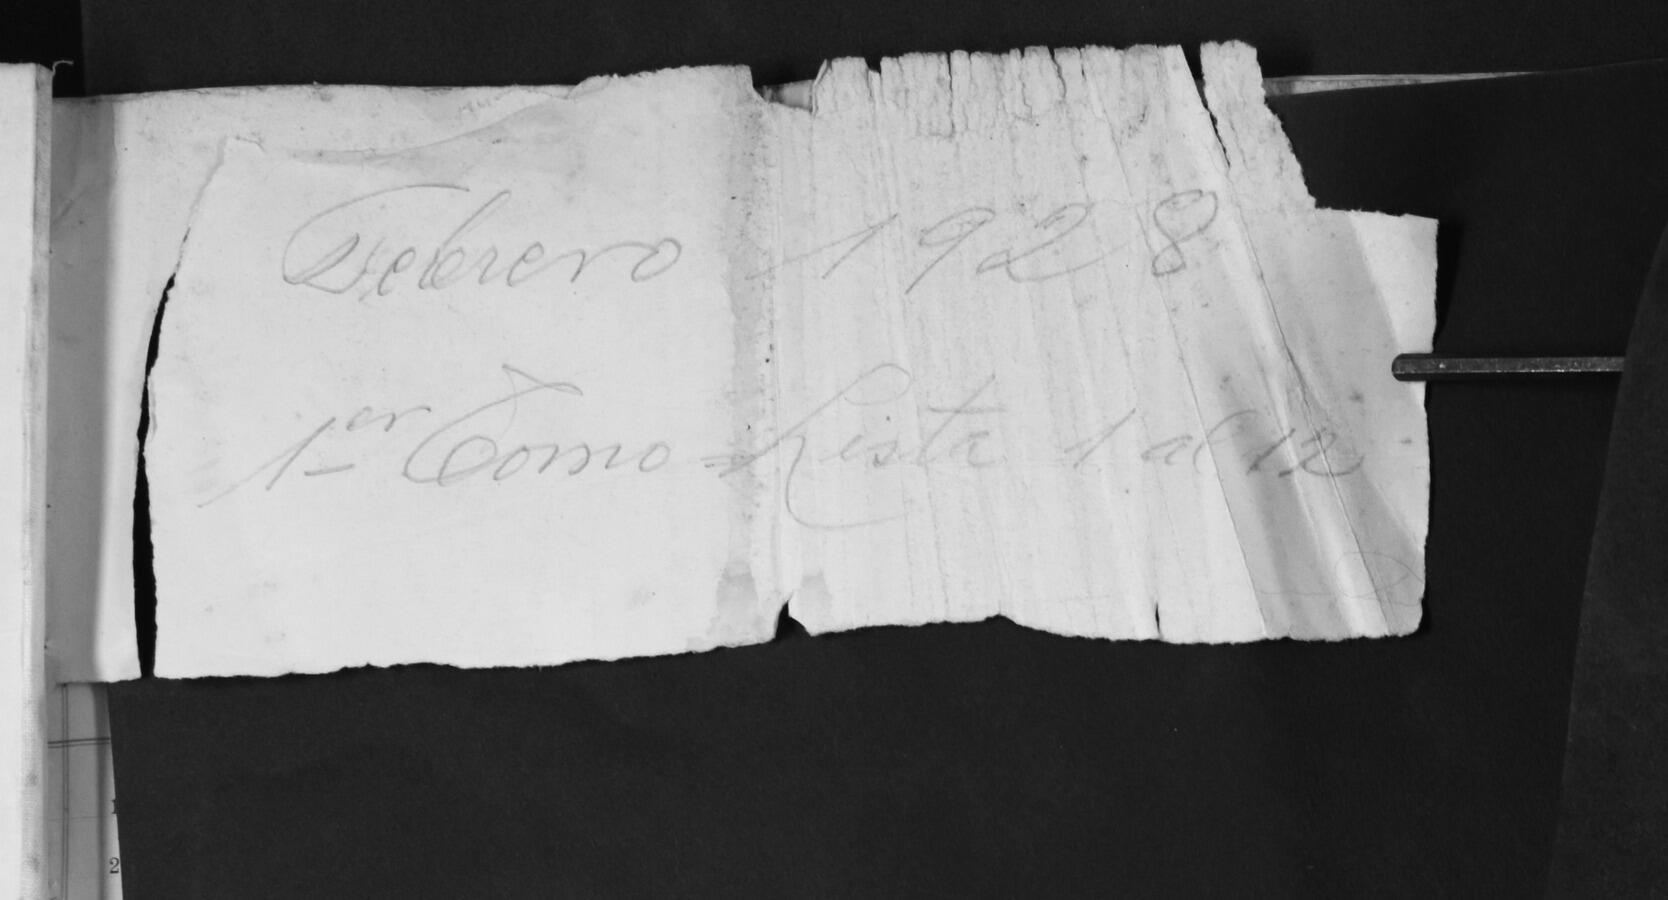 Febrero 1928
1er Tomo = Lista 1 al 12
2